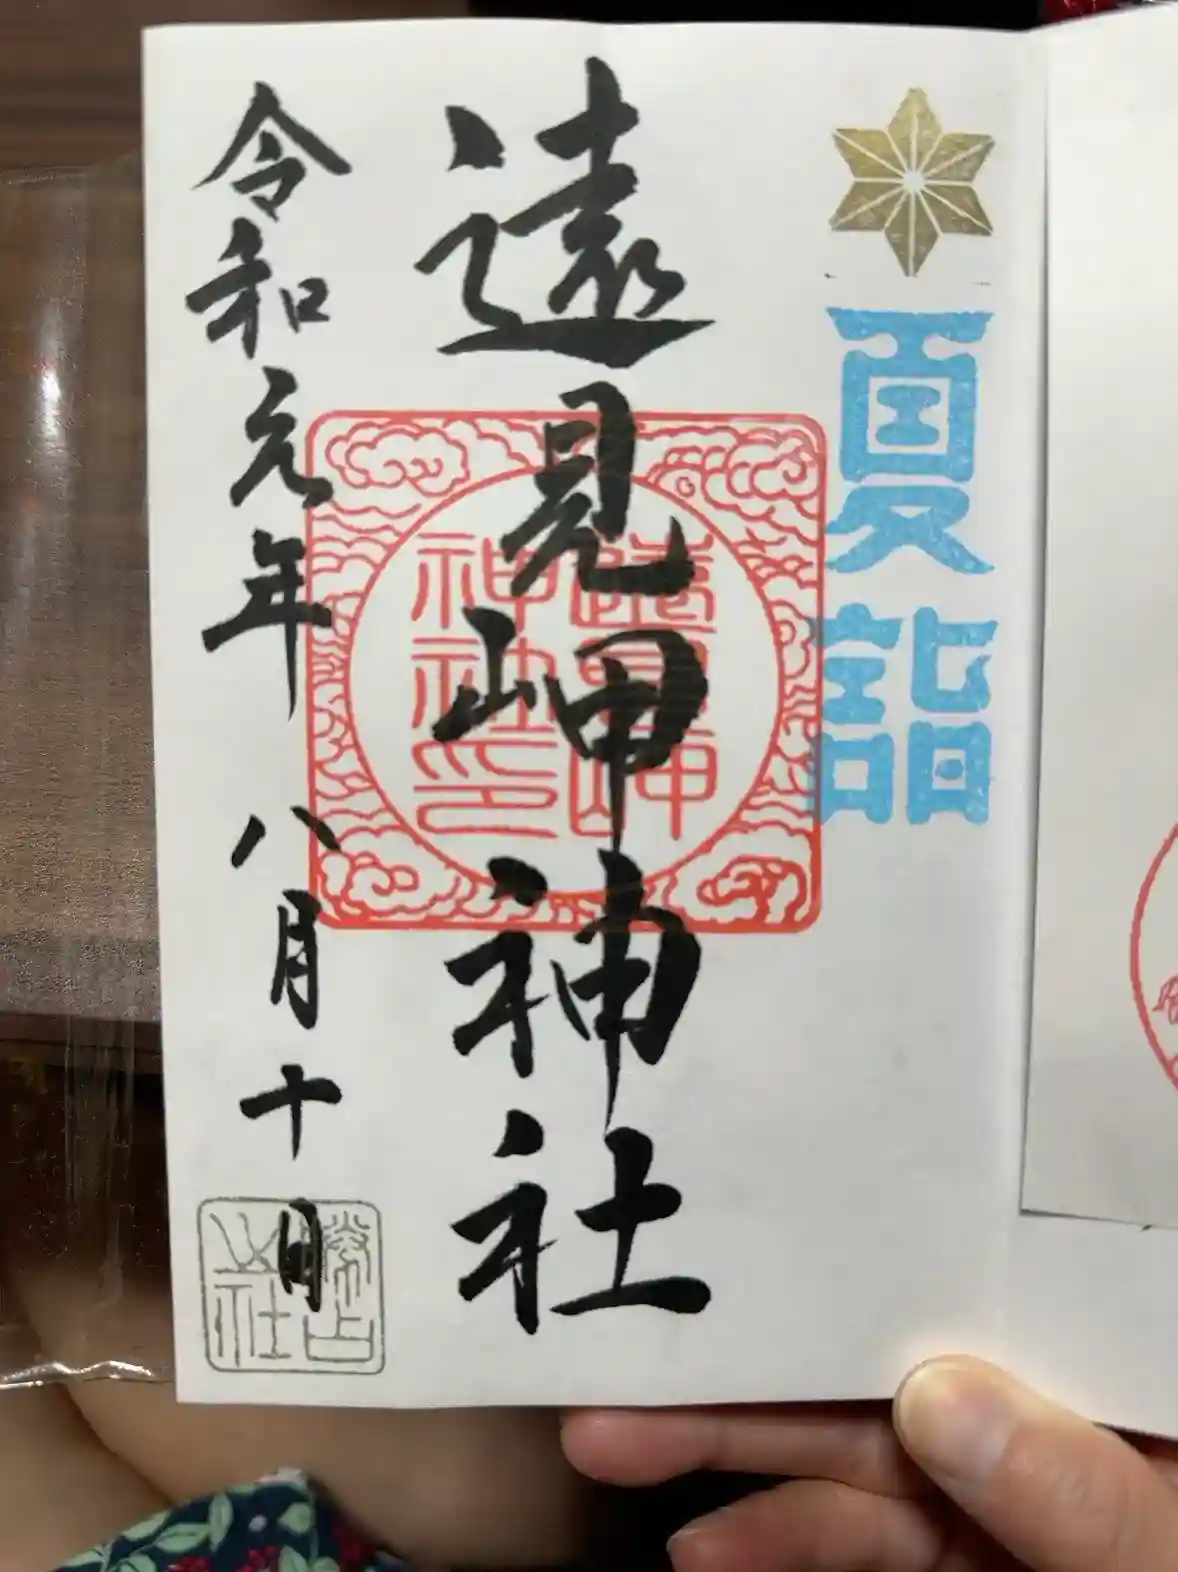 夏詣
遠見岬神社
遠見岬
神社印
令和元年 八月十日
勝占
之社